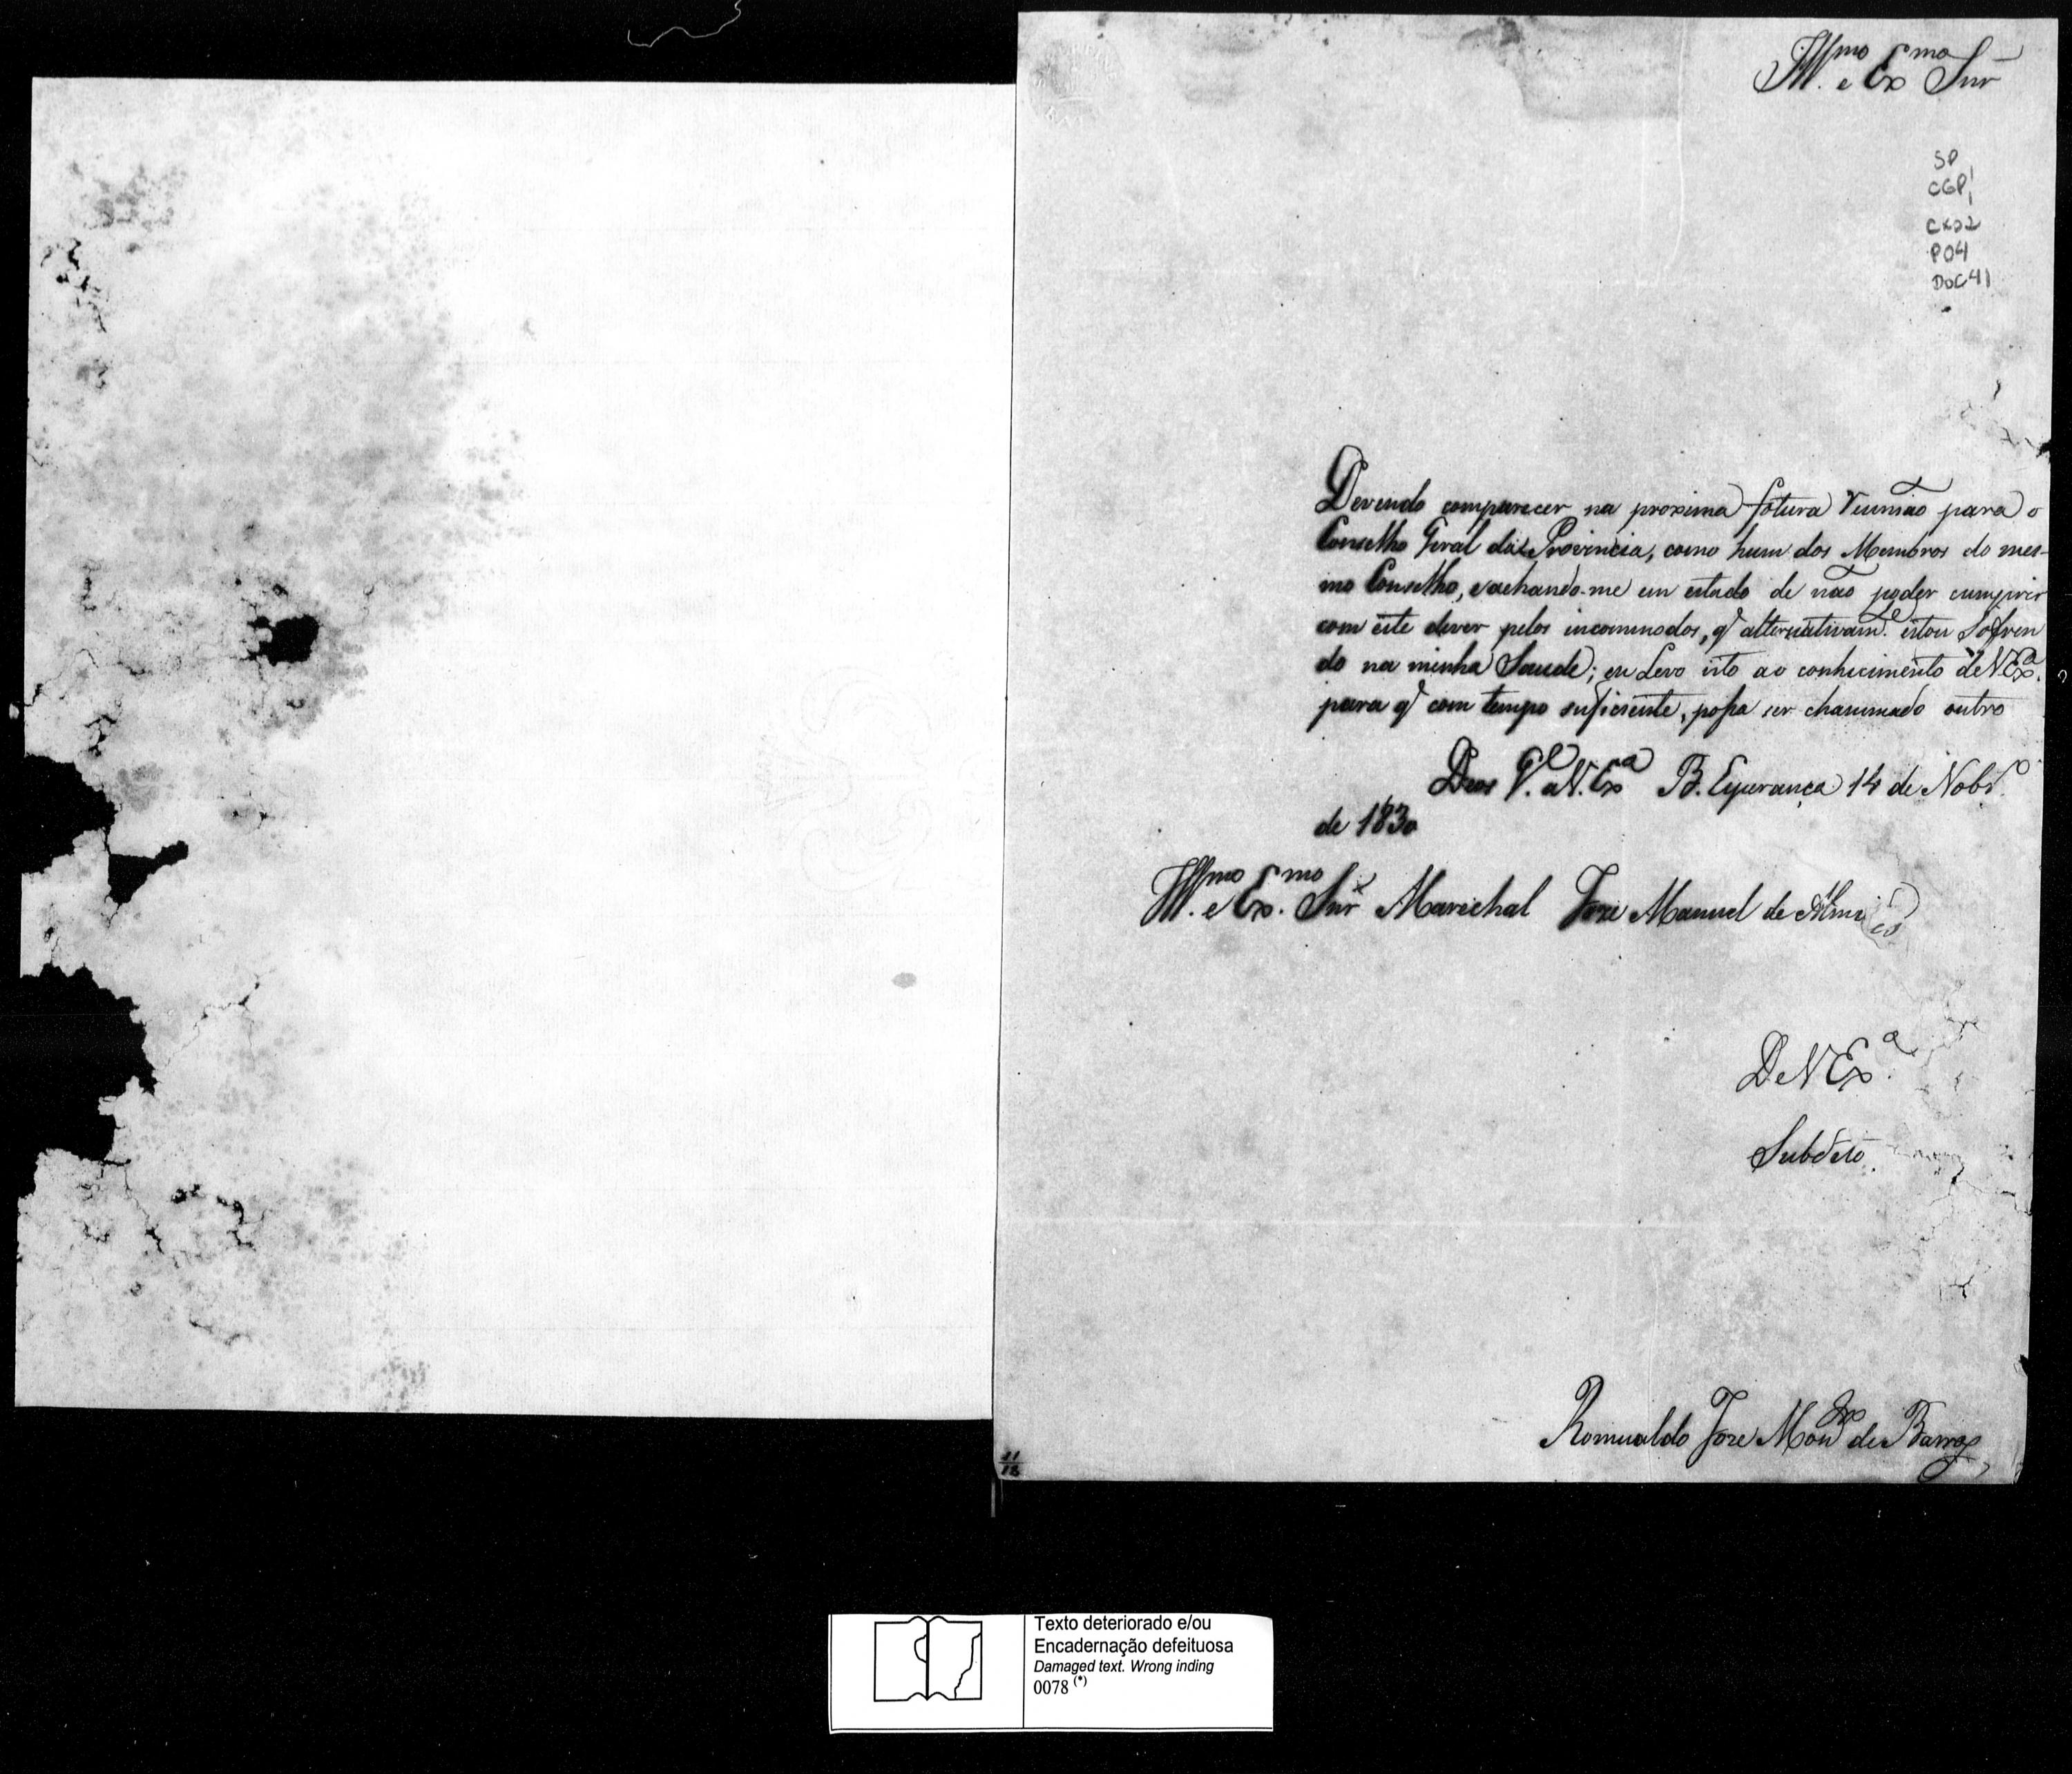 Ill.mo e Ex.mo Snr
SP
CGP
CX02
P04
DOC41
Devendo comparecer na proxima fotura reunião para o
Conselho Geral da Provincia, como hum dos Membros do mes-
mo Conselho, e achando-me em estado de não poder cumprir
com este dever pelos incommodos, q' alternativam.te estou sofren
do na minha Saude; eu Levo isto ao conhecimento de V Ex.a
para q' com tempo suficiente, possa ser chammado outro
Deos G.e a V. Ex.a B. Esperança 14 de Nobr.o
de 1830
Ill.mo e Ex.mo Snr Marechal Joze Manuel de Almeida
De V Ex.a
Subdito.
Romualdo Joze Mon.ro de Barros
11
18
Texto deteriorado e/ou
Encadernação defeituosa
Damaged text. Wrong inding
0078 (*)